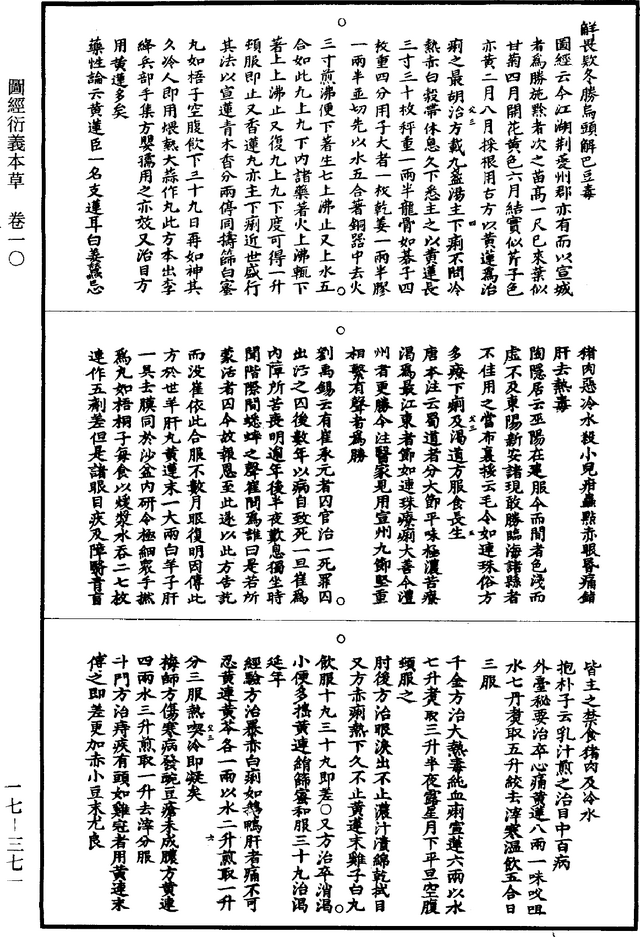 圖經衍義本草 卷一〇
一七—三七一
鮮畏欵冬勝烏頭解巴豆毒
圖經云今江湖荆夔州郡亦有而以宣城
者為勝施黔者次之苗高一尺已來葉似
甘菊四月開花黃色六月結實似芹子色
亦黃二月八月採根用古方以黃連為治
痢之最胡洽方載九盞湯主下痢不問冷
熱赤白穀滯休息久下悉主之以黃連長
三寸三十枚秤重一兩半龍骨如棊子四
枚重四分用子大者一枚乾姜一兩半膠
一兩半並切先以水五合著銅器中去火
三寸煎沸便下著生七上沸止又上水五
合如此九上九下內諸藥著火上沸輒下
著土上沸止又復九上九下度可得一升
頓服即止又香連丸亦主下痢近世盛行
其法以宣蓮青木香分兩停同擣篩白蜜
丸如梧子空腹飲下三十九日再如神其
久冷人即用煨熟大蒜作丸此方本出李
絳兵部手集方嬰孺用之亦效又治目方
用黃蓮多矣
藥性論云黃蓮臣一名支連耳白姜蠶忌
猪肉惡冷水殺小兒疳蟲點赤眼昏痛鎮
肝去熱毒
陶隱居云巫陽在建服今而間者色淺而
虛不及東陽新安諸現敢勝臨海諸縣者
不佳用之當布裹挼云毛令如連珠俗方
多療下痢及渴道方服食長生
唐本注云蜀道者分大節平味極濃苦療
渴為最江東者節如連珠療痢大善今澧
州者更勝今注醫家見用宣州九節堅重
相擊有聲者為勝
劉禹錫云有崔承元者因官治一死罪囚
出活之囚後數年以病自致死一旦崔為
內障所苦喪明逾年後半夜歎息獨坐時
聞階際間蟋蟀之聲崔問為誰曰是若所
蒙活者囚今故報恩至此遂以此方告訖
而没崔依此合服不數月眼復明因傳此
方於世羊肝丸黃蓮末一大兩白羊子肝
一具去膜同於沙盆內研令極細衆手撚
為丸如梧桐子每食以煖漿水吞二七枚
連作五劑差但是諸眼目疾及障翳青盲
皆主之禁食猪肉及冷水
抱朴子云乳汁煎之治目中百病
外臺秘要治卒心痛黃蓮八兩一味㕮咀
水七升煑取五升絞去滓寒溫飲五合日
三服
千金方治大熱毒純血痢宣蓮六兩以水
七升煑取三升半夜露星月下平旦空腹
頓服之
肘後方治眼淚出不止濃汁漬綿乾拭目
又方赤痢熱下久不止黃連末雞子白丸
飲服十九三十九即差〇又方治卒消渴
小便多擣黃連絹篩蜜和服三十九治渴
延年
經驗方治暴赤白痢如鵝鴨肝者痛不可
忍黃連黃芩各一兩以水二升煎取一升
分三服熱喫冷即凝矣
梅師方傷寒病發豌豆瘡未成膿方黃連
四兩水三升煎取一升去滓分服
斗門方治痔疾有頭如雞冠者用黃連末
傅之即差更加赤小豆末尤良